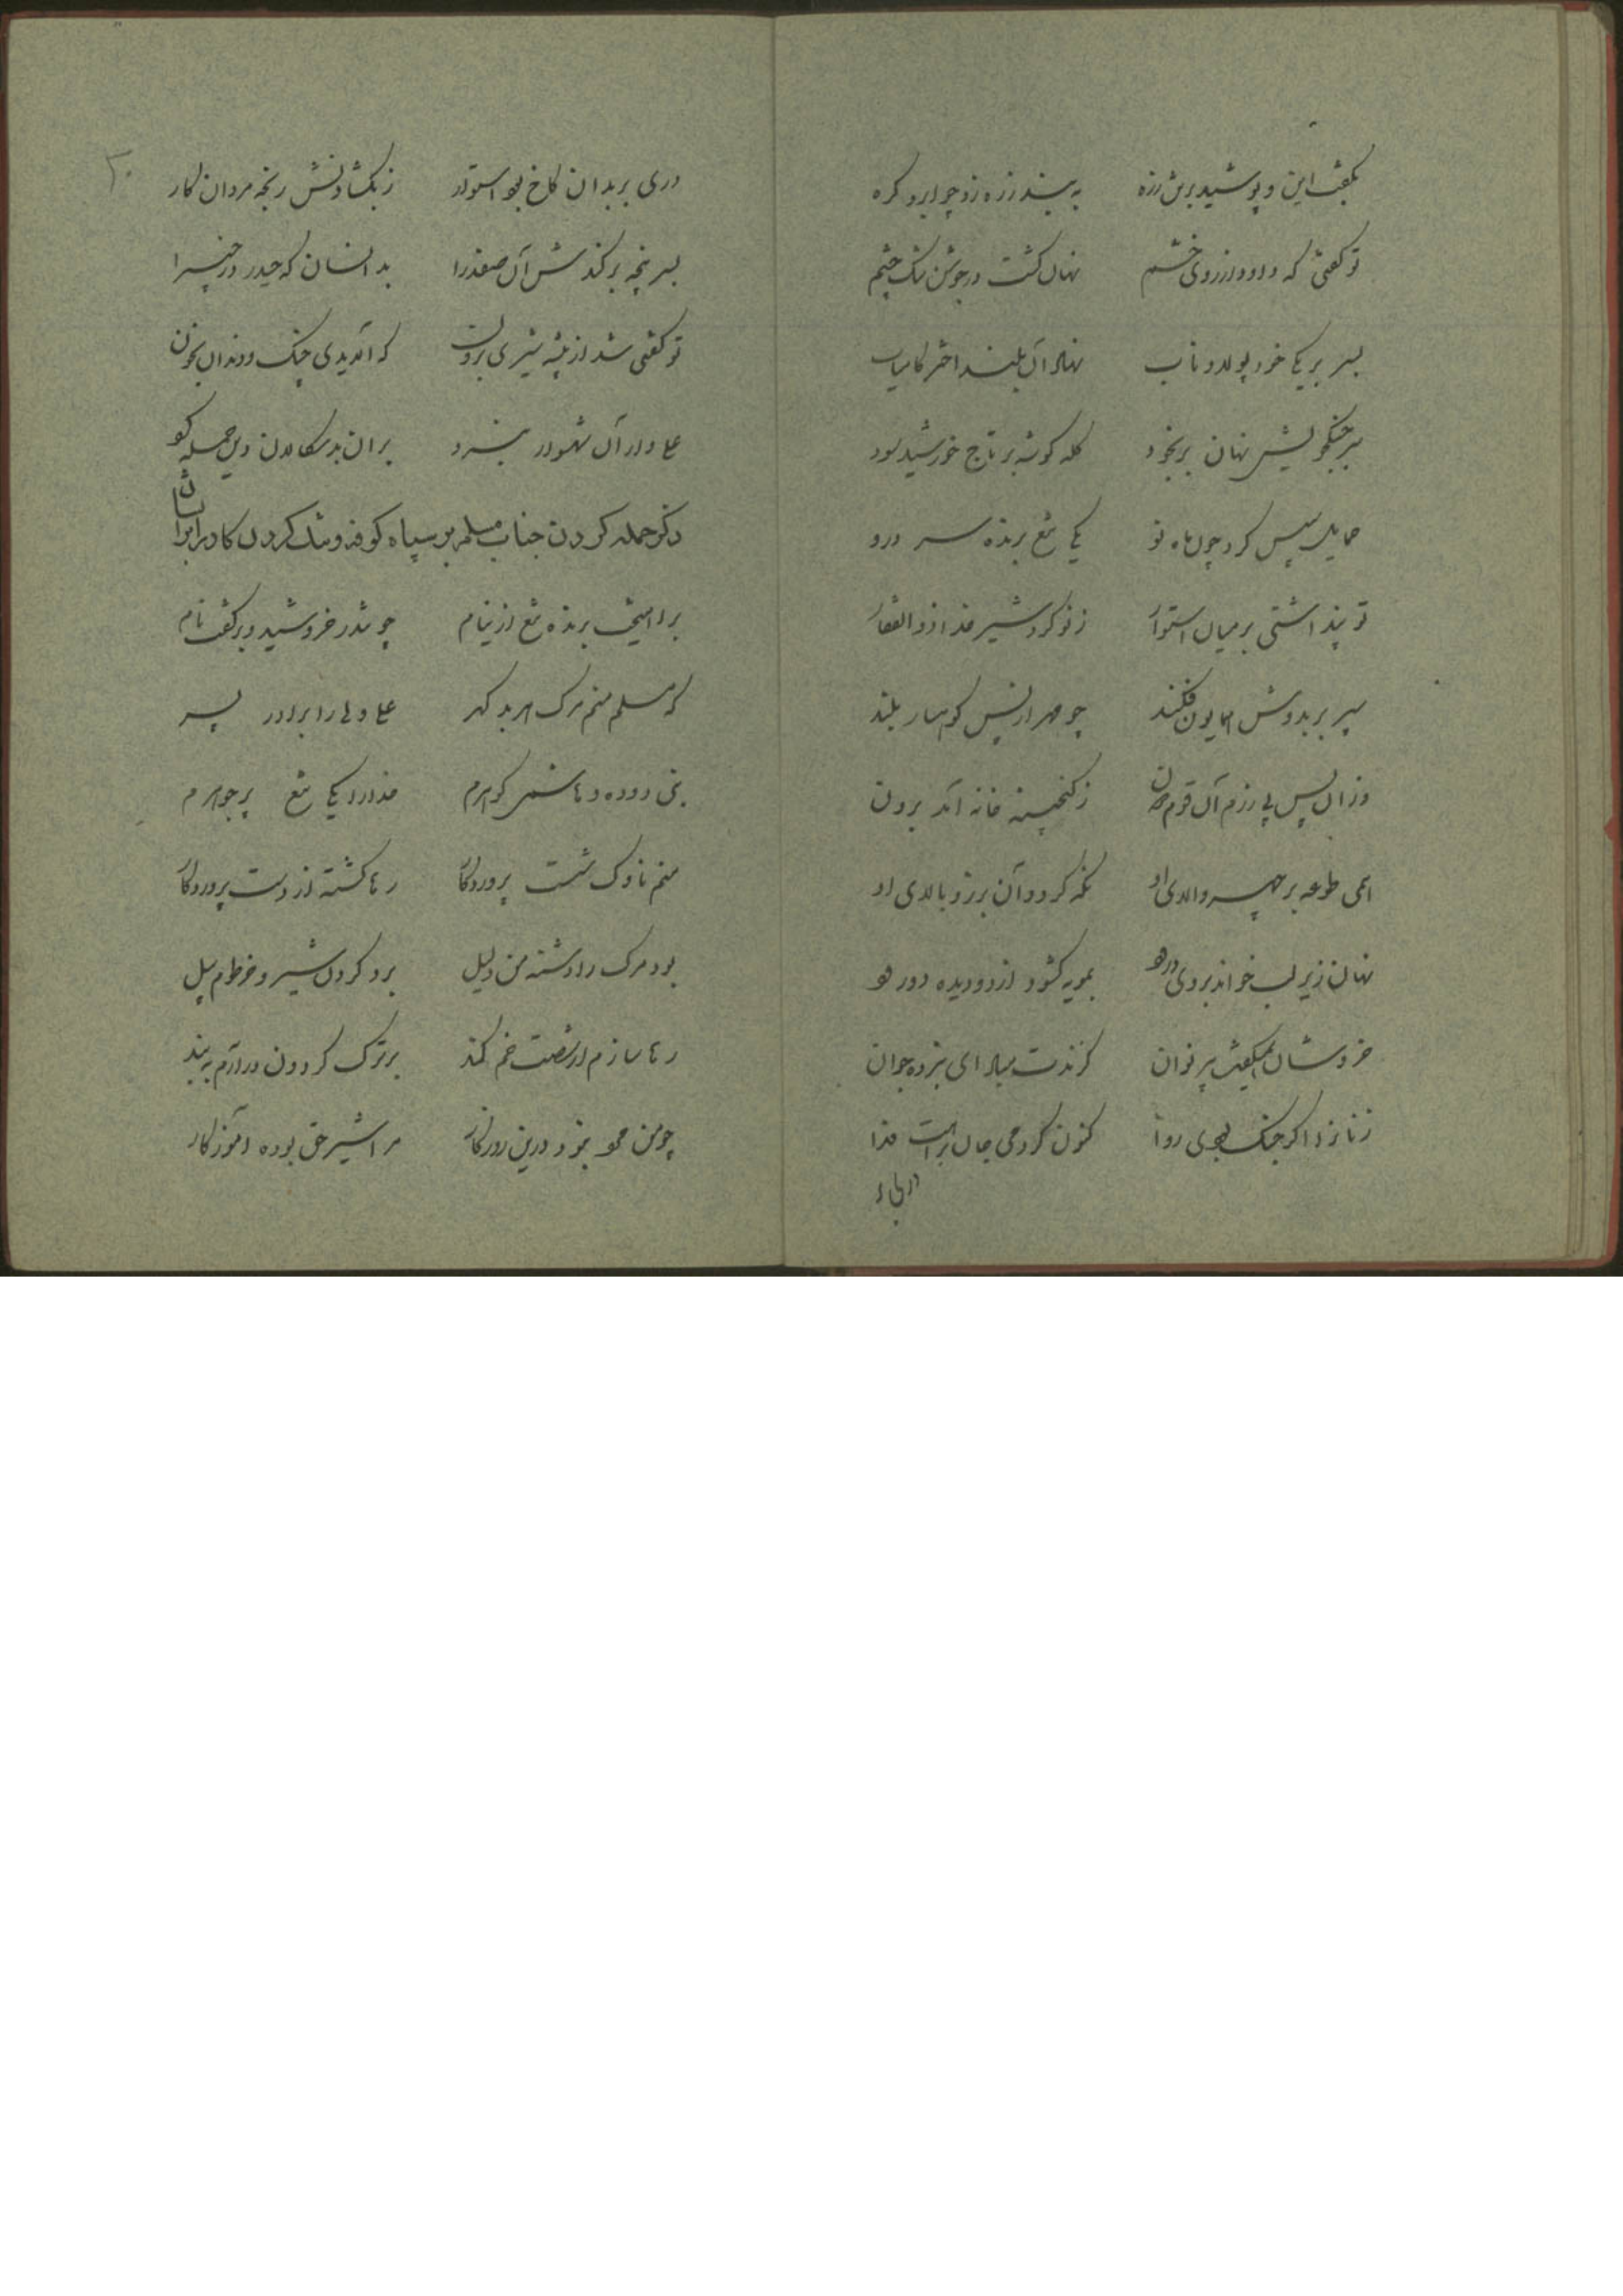 بگفت این و پوشید برتن زره به بند زره زد چو ابرو گره
تو گفتی که داود از روی خشم نهان گشت در جوشن تنگ چشم
بسر بر یکی خود پولاد ناب نهاد آن بلند اختر کامیاب
سر جنگجویش نهان بر بخود کله گوشه بر تاج خورشید سود
حمایل سپس کرد چون ماه نو یکی تیغ برنده سر درو
تو پنداشتی بر میان استوار ز نو کرد شیر خدا ذوالفقار
سپر بر بدوش همایون فکند چو مهر از پس کوهسار بلند
وزان پس پی رزم آن قوم دون ز گنجینه خانه آمد برون
همی طوعه بر چهر والای او نگه کرد و آن برز و بالای او
نهان زیر لب خواند بر وی درود بمویه گشود از دو دیده دو رود
خروشان همیگفت پیر نوان گزندت مباد ای نبرده جوان
زنان را اگر جنگ بودی روا کنون کردمی جان براهت فدا
دری بر
۳۰
دری بر بدان کاخ بود استوار ز بگشادنش رنجه مردان کار
بسر پنجه بر کندش آن صفدرا بدانسان که حیدر در خیبرا
تو گفتی شد از بیشه شیری برون که آلایدی چنگ و دندان بخون
علی وار آن شهسوار نبرد بران بدسگالان دون حمله کرد
ذکر حمله کردن جناب مسلم بر سپاه کوفه و تنگ کردن کار بر ایشان
بر آهیخت برنده تیغ از نیام چو تندر خروشید و برگفت نام
که مسلم منم مرگ هر بد گهر علی ولی را برادر پسر
بنی دوده و هاشمی گوهرم خدا را یکی تیغ پر جوهرم
منم ناوک شست پروردگار رها گشته از دست پروردگار
بود مرگ را دشنه من دلیل برد گردن شیر و خرطوم پیل
رها سازم ار شصت خم کمند بر ترک گردون در آرم به بند
چو من مو بود درین روزگار مرا شیر حق بوده آموزگار